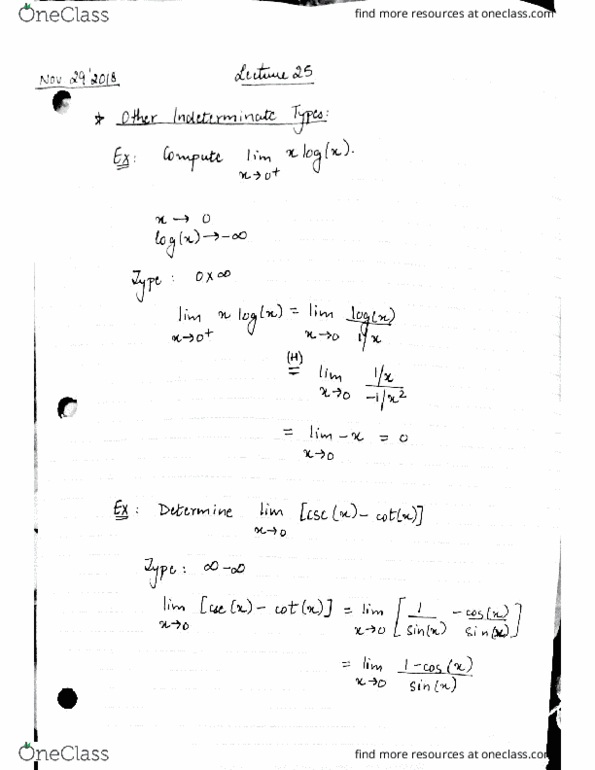 OneClass
find more resources at oneclass.com
Nov 29' 2018
Lecture 25
* Other Indeterminate Types:
Ex: Compute lim x→0⁺ x log(x).
x → 0
log(x) → -∞
Type: 0 × ∞
lim x→0⁺ x log(x) = lim x→0 log(x) / 1/x
(H) = lim x→0 1/x / -1/x²
= lim x→0 -x = 0
Ex: Determine lim x→0 [csc(x) - cot(x)]
Type: ∞-∞
lim x→0 [csc(x) - cot(x)] = lim x→0 [1/sin(x) - cos(x)/sin(x)]
= lim x→0 1-cos(x) / sin(x)
OneClass
find more resources at oneclass.com